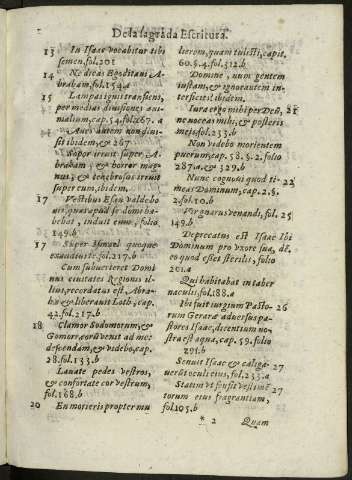 De la sagrada Escritura.
13 In Isaac vocabitur tibi
semen. fol. 201
14 Ne dicas Ego ditavi A-
brabam, fol. 154. a
15 Lampas ignis transiens,
per medias divisiones ani-
malium, cap. 54. fol. 267. a
Aves autem non divi-
sit ibidem, & 267
Sopor irruit super A-
braham, & horror mag-
nus, & tenebrosus irruit
super eum, ibidem.
17 Vestibus Esau valde bo
nis, quas apud se domi ba-
bebat, induit eum, folio
149. b
17 Super Ismael quoque
exaudivi te. fol. 217. b
Cum subverteret Domi
nus civitates Regionis il-
lius, recordatus est, Abra-
hæ & liberavit Loth, cap.
42. fol. 217. b
18 Clamor Sodomorum, &
Gomorræ orũ venit ad me:
descendam, & videbo, cap.
28. fol. 133. b
Lavate pedes vestros,
& confortate cor vestrum,
fol. 168. b
20 En morieris propter mu
lierem, quam tulisti, capit.
60. §. 4. fol. 312. b
Domine, num gentem
iustam, & ignorautem in-
terficies? ibidem.
Iura ergo mihi per Deũ, 21
ne noceas mihi, & posteris
meis. fol. 233. b
Non videbo morientem
puerum, cap. 58. §. 2. folio
287. a, & 329. b
Nunc cognovi quod ti- 22
meas Dominum, cap. 2. §.
2. fol. 10. b
Vir gnarus venandi, fol. 25
149. b
Deprecatus est Isaac Ibi
Dominum pro uxore sua, ab
eo quod esset sterilis, folio
201. a
Qui habitabat in taber
naculis. fol. 188. a
Ibi fuit iurgium Pasto- 26
rum Geraræ adversus pa-
stores Isaac, dicentium no-
stra est aqua, cap. 59. folio
291. b
Senuit Isaac & caliga- 27
verũt oculi eius, fol. 233. a
Statim ut sensit vestimẽ 27
torum eius fragrantiam,
fol. 105. b
* 2 Quam